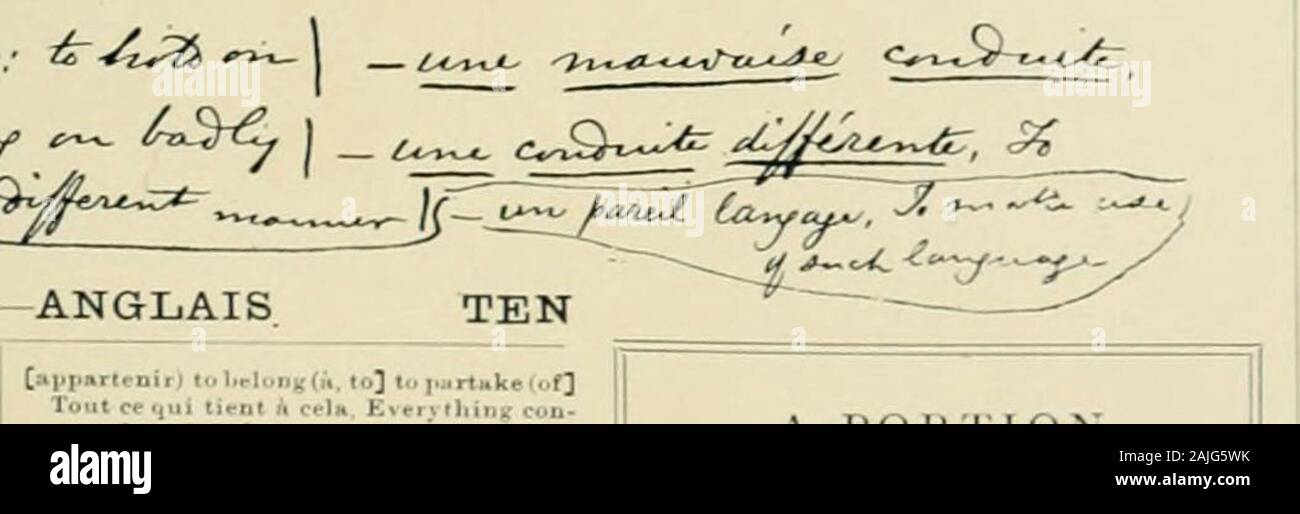 : to on | — une mauvaise conduite,
on badly | — une conduite différente, To
different manner || — un pareil langage, To make use
of such language
—ANGLAIS. TEN
[appartenir) to belong (à, to] to partake (of]
Tout ce qui tient à cela, Everything con-
A PORTION
alamy
Image ID: 2AJG5WK
www.alamy.com